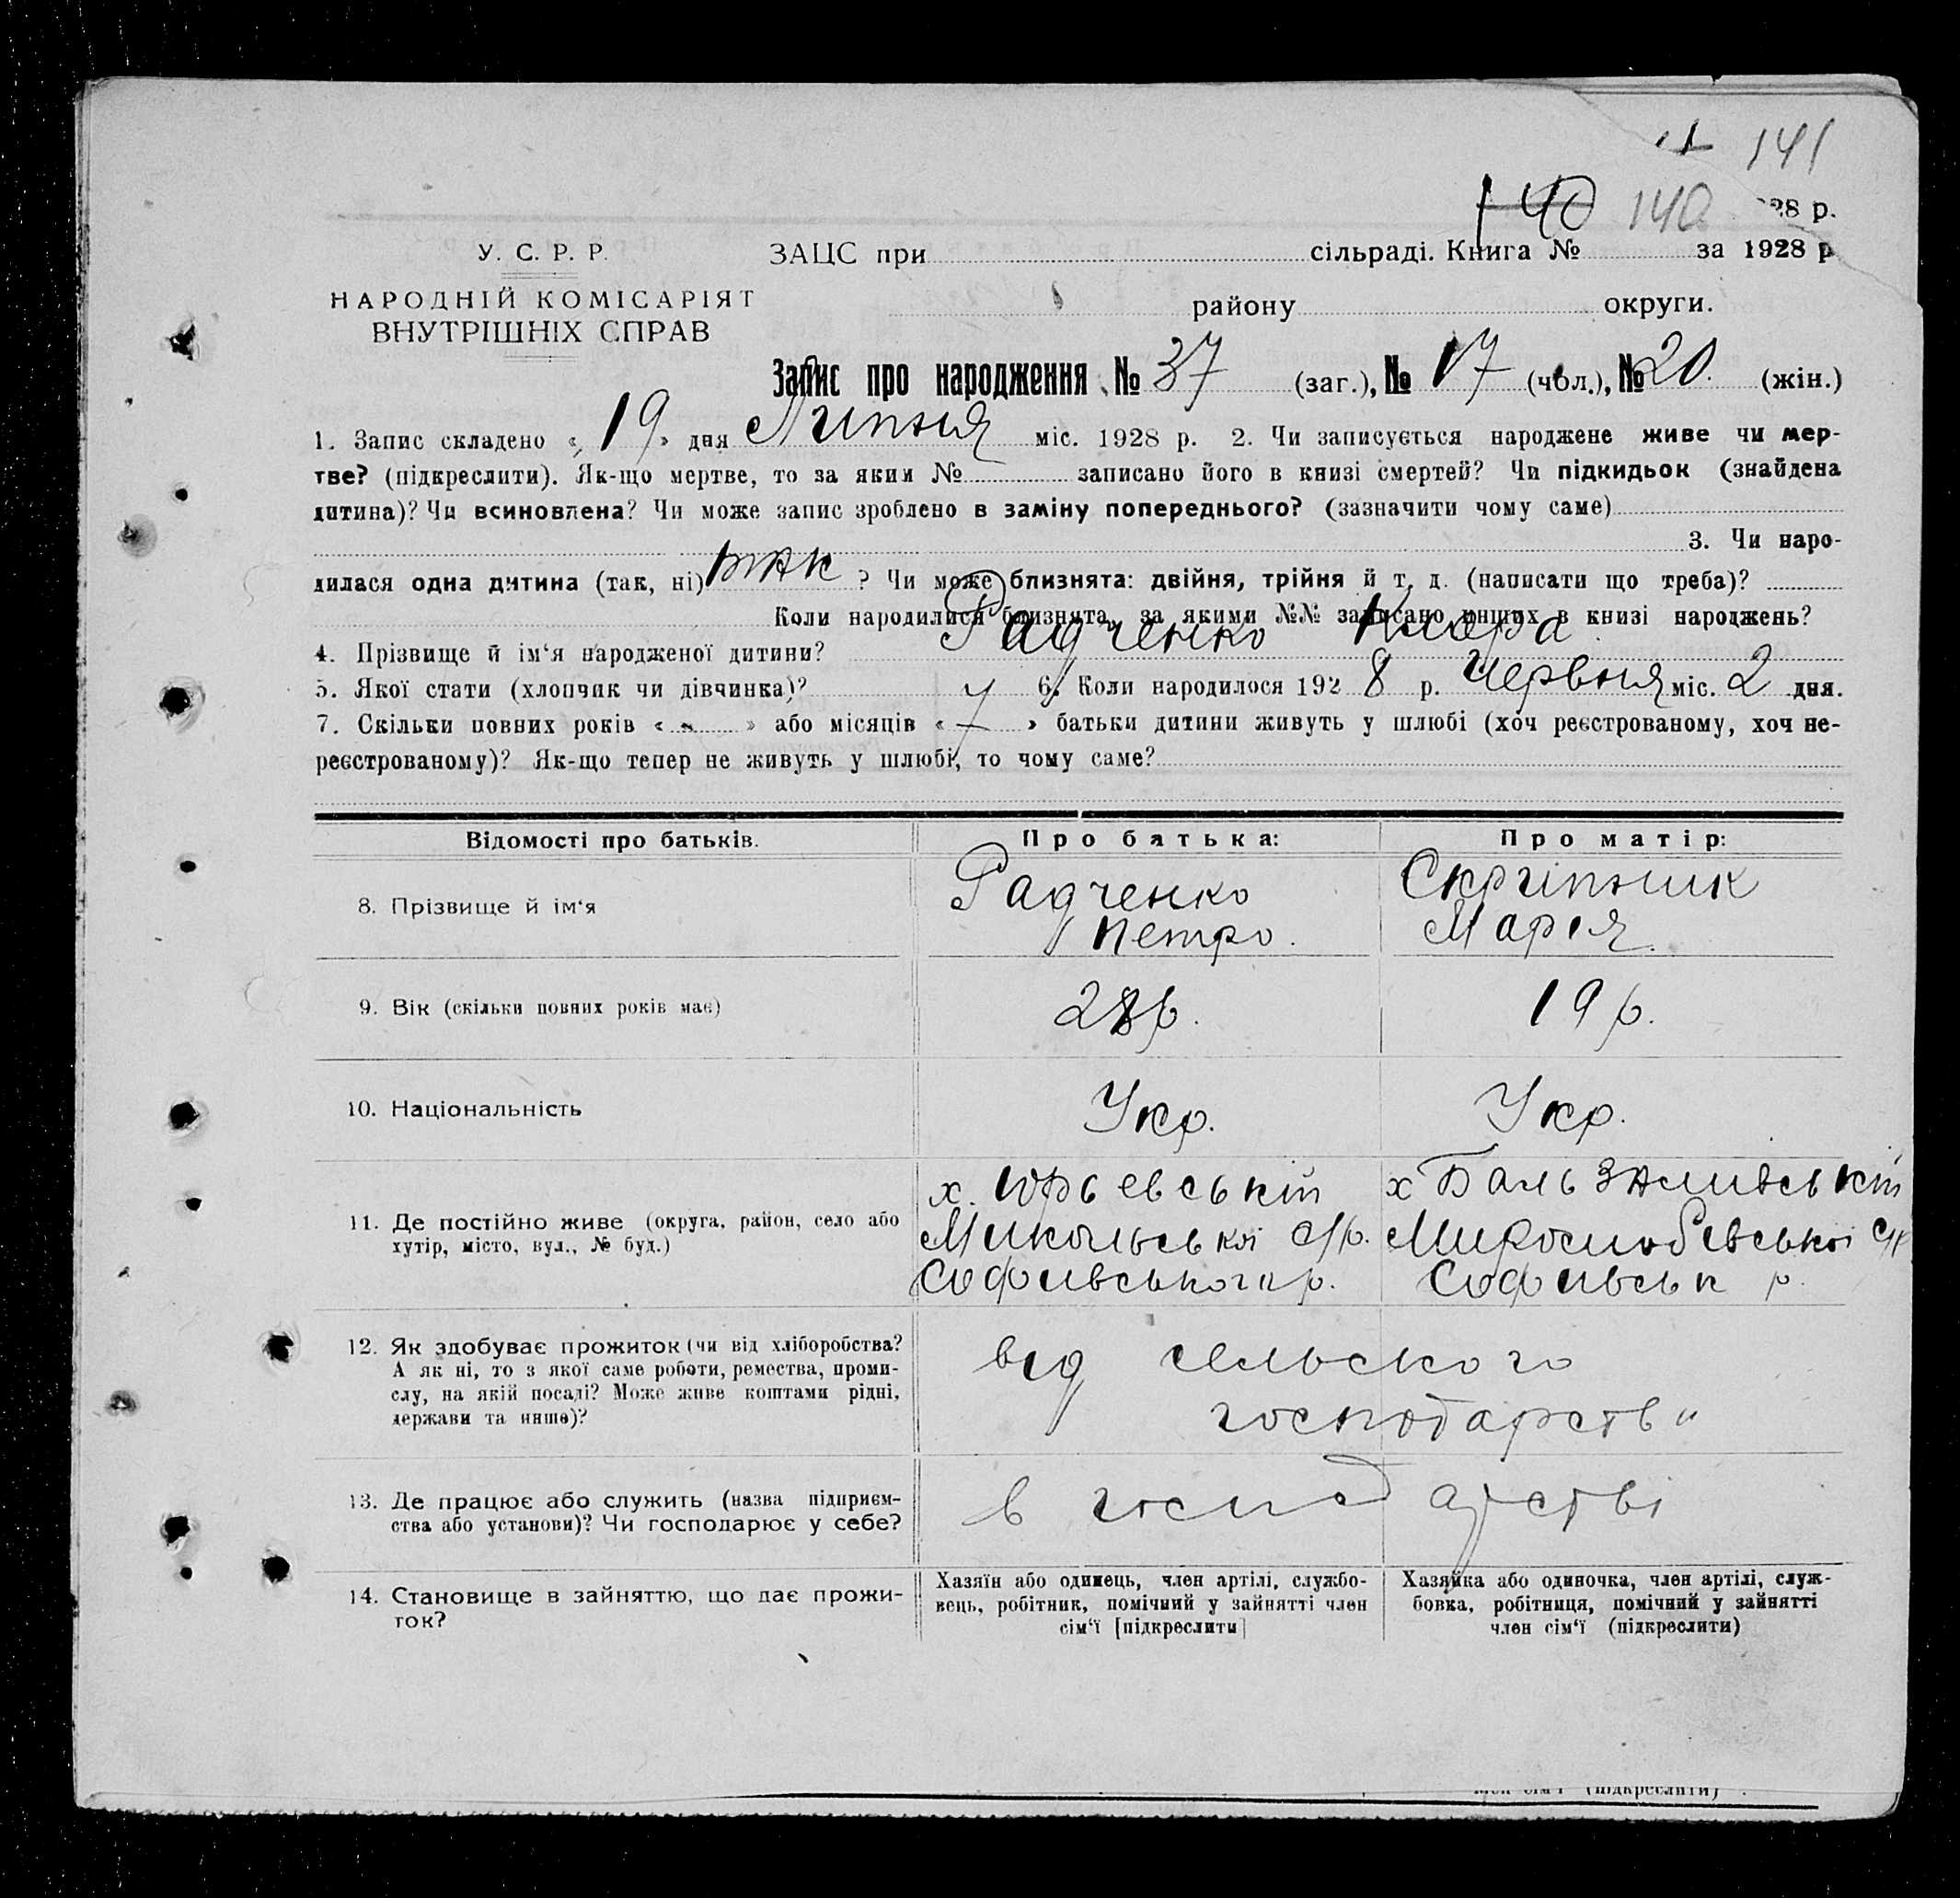 141
140 140 28 р.
У. С. Р. Р.
ЗАЦС при сільраді. Книга № за 1928 р
НАРОДНІЙ КОМІСАРІЯТ
ВНУТРІШНІХ СПРАВ
району округи.
Запис про народження № 37 (заг.), № 17 (чол.), № 20. (жін.)
1. Запис складено « 19 » дня Липня міс. 1928 р. 2. Чи записується народжене живе чи мер-
тве? (підкреслити). Як-що мертве, то за яким № записано його в книзі смертей? Чи підкидьок (знайдена
дитина)? Чи всиновлена? Чи може запис зроблено в заміну попереднього? (зазначити чому саме)
3. Чи наро-
дилася одна дитина (так, ні) так ? Чи може близнята: двійня, трійня й т. д. (написати що треба)?
Коли народилися близнята, за якими №№ записано инших в книзі народжень?
4. Прізвище й ім‘я народженої дитини? Радченко
5. Якої стати (хлопчик чи дівчинка)? 6. Коли народилося 192 8 р. Червня міс. 2 дня.
7. Скільки повних років « - » або місяців « » батьки дитини живуть у шлюбі (хоч реєстрованому, хоч не-
реєстрованому)? Як-що тепер не живуть у шлюбі, то чому саме?
Відомості про батьків. Про батька: Про матір:
8. Прізвище й ім‘я Радченко Петро. Скрипник Мария.
9. Вік (скільки повних років має) 28 р. 19 р.
10. Національність Укр. Укр.
11. Де постійно живе (округа, район, село або
хутір, місто, вул., № буд.)
х. Юрьевський
Микольської с/р.
Софиивського р.
х Бальзамивський
Миролюбевської с/р
Софиивськ р.
12. Як здобуває прожиток (чи від хліборобства?
А як ні, то з якої саме роботи, ремества, проми-
слу, на якій посаді? Може живе коштами рідні,
держави та инше)?
від сельского
господарства
13. Де працює або служить (назва підприєм-
ства або установи)? Чи господарює у себе?
в господарстві
14. Становище в зайняттю, що дає прожи-
ток?
Хазяїн або одинець, член артілі, службо-
вець, робітник, помічний у зайнятті член
сім‘ї [підкреслити]
Хазяйка або одиночка, член артілі, служ-
бовка, робітниця, помічний у зайнятті
член сім‘ї (підкреслити)
(підкреслити)